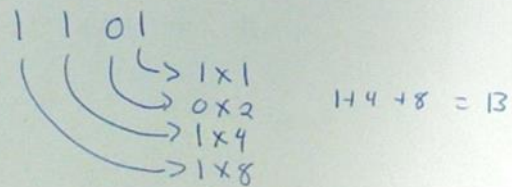 1 1 0 1
1x1
0x2
1x4
1x8
1+4+8 = 13